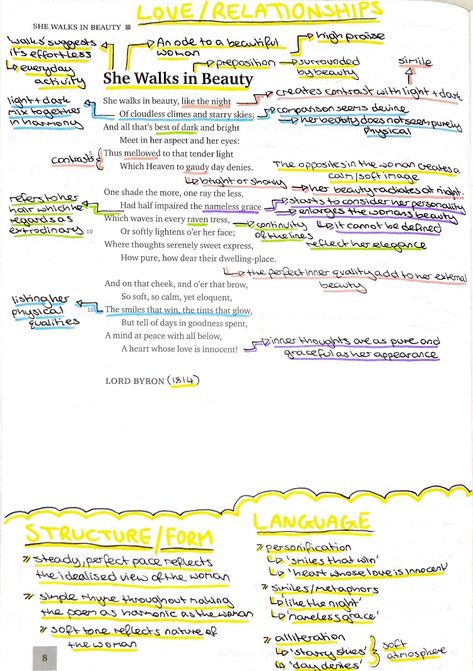 LOVE/RELATIONSHIPS
SHE WALKS IN BEAUTY
'Walks' suggests
it's effortless
↳ everyday
activity
An ode to a beautiful
woman
high praise
preposition → surrounded
by beauty
simile
She Walks in Beauty
She walks in beauty, like the night
creates contrast with light + dark
light + dark
mix together
in harmony
Of cloudless climes and starry skies;
comparison seems devine
↳ her beauty does not seem purely
physical
And all that's best of dark and bright
Meet in her aspect and her eyes:
contrasts
Thus mellowed to that tender light
Which Heaven to gaudy day denies.
The opposites in the woman creates
a calm/soft image
↳ bright or showy
her beauty radiates at night.
One shade the more, one ray the less,
Had half impaired the nameless grace
starts to consider her personality
enlarges the womans beauty
↳ it cannot be defined
refers to her
hair which he
regards as
extrodinary
Which waves in every raven tress,
continuity
of the lines
10
Or softly lightens o'er her face;
reflect her elegance
Where thoughts serenely sweet express,
How pure, how dear their dwelling-place.
↳ the perfect inner quality add to her external
beauty
And on that cheek, and o'er that brow,
So soft, so calm, yet eloquent,
listing her
physical
qualities
15
The smiles that win, the tints that glow,
But tell of days in goodness spent,
A mind at peace with all below,
A heart whose love is innocent!
inner thoughts are as pure and
graceful as her appearance
LORD BYRON (1814)
STRUCTURE/FORM
» steady, perfect pace reflects
the idealised view of the woman
» simple rhyme throughout making
the poem as harmonic as the woman
» soft tone reflects nature of
the woman
LANGUAGE
» personification
↳ 'smiles that win'
↳ 'heart whose love is innocent'
» similes/metaphors
↳ 'like the night'
↳ 'nameless grace'
» alliteration
↳ 'starry skies'
↳ 'day denies'
soft
atmosphere
8